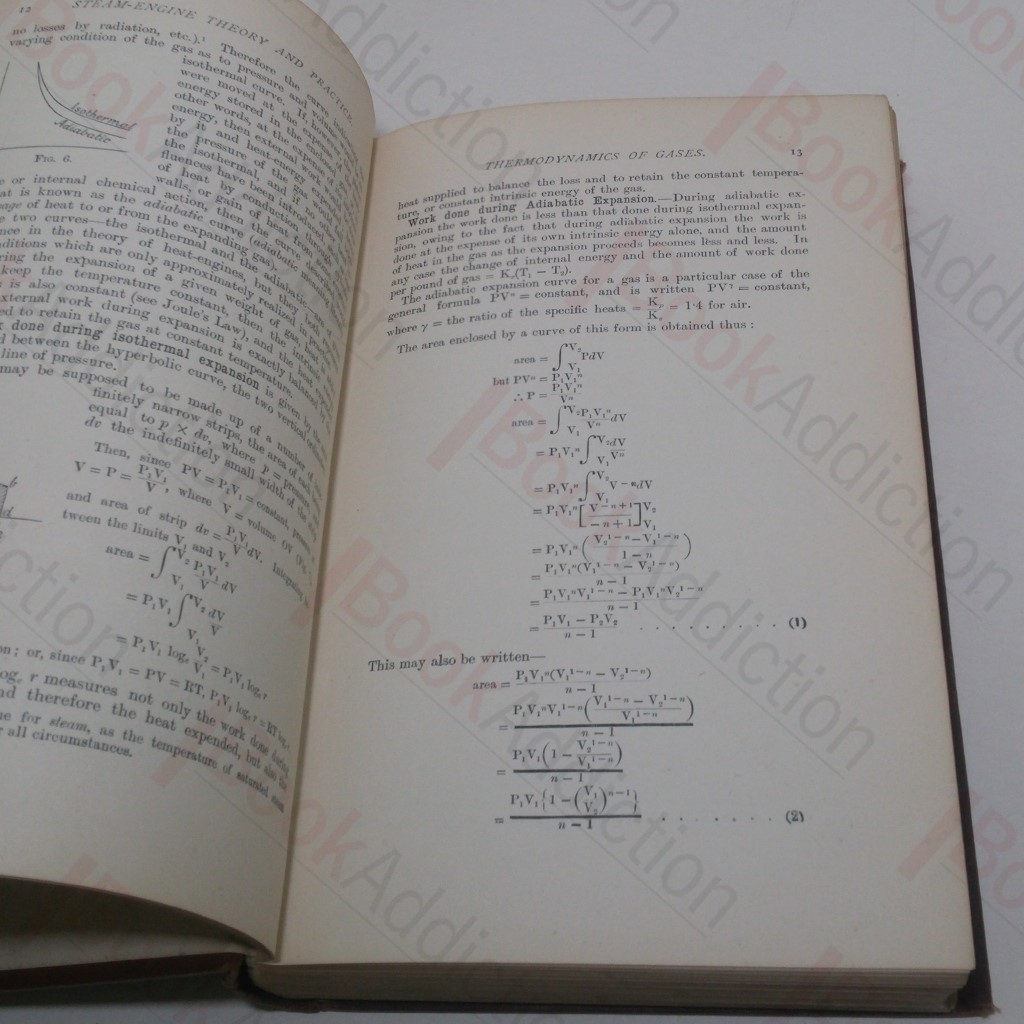 12 STEAM-ENGINE THEORY AND PRACTICE
no losses by radiation, etc.).¹ Therefore the curve
varying condition of the gas as to pressure and volume
isothermal curve. If, however,
were moved at the expense of
energy stored in the
other words, at the
energy, then external work
by it and heat-energy
the pressure of the gas would
the isothermal, and if
fluences have been introduced
of heat by conduction
walls, or gain of heat from
Isothermal
Adiabatic
FIG. 6.
or internal chemical action, then the curve
at is known as the adiabatic curve (adiabatic
age of heat to or from the expanding gas).
two curves—the isothermal and the adiabatic
nce in the theory of heat-engines, but they
ditions which are only approximately realized in
ring the expansion of a given weight of gas, heat
keep the temperature constant, then the
is also constant (see Joule's Law), and the heat
external work during expansion is exactly balanced
ed to retain the gas at constant temperature.
done during isothermal expansion is given by the
d between the hyperbolic curve, the two vertical
line of pressure.
may be supposed to be made up of a number of
finitely narrow strips, the area of each
equal to p × dv, where p = pressure
dv the indefinitely small width of the
Then, since PV = P₁V₁ = constant,
V = P = P₁V₁/V, where V = volume OV
and area of strip dv = P₁V₁/V dV. Integrating
tween the limits V₁ and V₂
area = ∫V₁^V₂ P₁V₁/V dV
= P₁V₁ ∫V₁^V₂ dV/V
= P₁V₁ logₑ V₂/V₁ = P₁V₁ logₑ r
on; or, since P₁V₁ = PV = RT, P₁V₁ logₑ r = RT logₑ r
logₑ r measures not only the work done during
nd therefore the heat expended, but also the
ne for steam, as the temperature of saturated steam
all circumstances.
b
d
THERMODYNAMICS OF GASES. 13
heat supplied to balance the loss and to retain the constant tempera-
ture, or constant intrinsic energy of the gas.
Work done during Adiabatic Expansion.—During adiabatic ex-
pansion the work done is less than that done during isothermal expan-
sion, owing to the fact that during adiabatic expansion the work is
done at the expense of its own intrinsic energy alone, and the amount
of heat in the gas as the expansion proceeds becomes less and less. In
any case the change of internal energy and the amount of work done
per pound of gas = Kᵥ(T₁ − T₂).
The adiabatic expansion curve for a gas is a particular case of the
general formula PVⁿ = constant, and is written PVᵞ = constant,
where γ = the ratio of the specific heats = Kₚ/Kᵥ = 1·4 for air.
The area enclosed by a curve of this form is obtained thus :
area = ∫V₁^V₂ PdV
but PVⁿ = P₁V₁ⁿ
∴ P = P₁V₁ⁿ/Vⁿ
area = ∫V₁^V₂ P₁V₁ⁿ/Vⁿ dV
= P₁V₁ⁿ ∫V₁^V₂ dV/Vⁿ
= P₁V₁ⁿ ∫V₁^V₂ V⁻ⁿdV
= P₁V₁ⁿ [V⁻ⁿ⁺¹/−n + 1]V₁^V₂
= P₁V₁ⁿ (V₂¹⁻ⁿ − V₁¹⁻ⁿ/1 − n)
= P₁V₁ⁿ(V₁¹⁻ⁿ − V₂¹⁻ⁿ)/n − 1
= P₁V₁ⁿV₁¹⁻ⁿ − P₁V₁ⁿV₂¹⁻ⁿ/n − 1
= P₁V₁ − P₂V₂/n − 1 . . . . . . . . . (1)
This may also be written—
area = P₁V₁ⁿ(V₁¹⁻ⁿ − V₂¹⁻ⁿ)/n − 1
= P₁V₁ⁿV₁¹⁻ⁿ(V₁¹⁻ⁿ − V₂¹⁻ⁿ/V₁¹⁻ⁿ)/n − 1
= P₁V₁(1 − V₂¹⁻ⁿ/V₁¹⁻ⁿ)/n − 1
= P₁V₁{1 − (V₁/V₂)ⁿ⁻¹}/n − 1 . . . . . . . (2)
BookAddiction